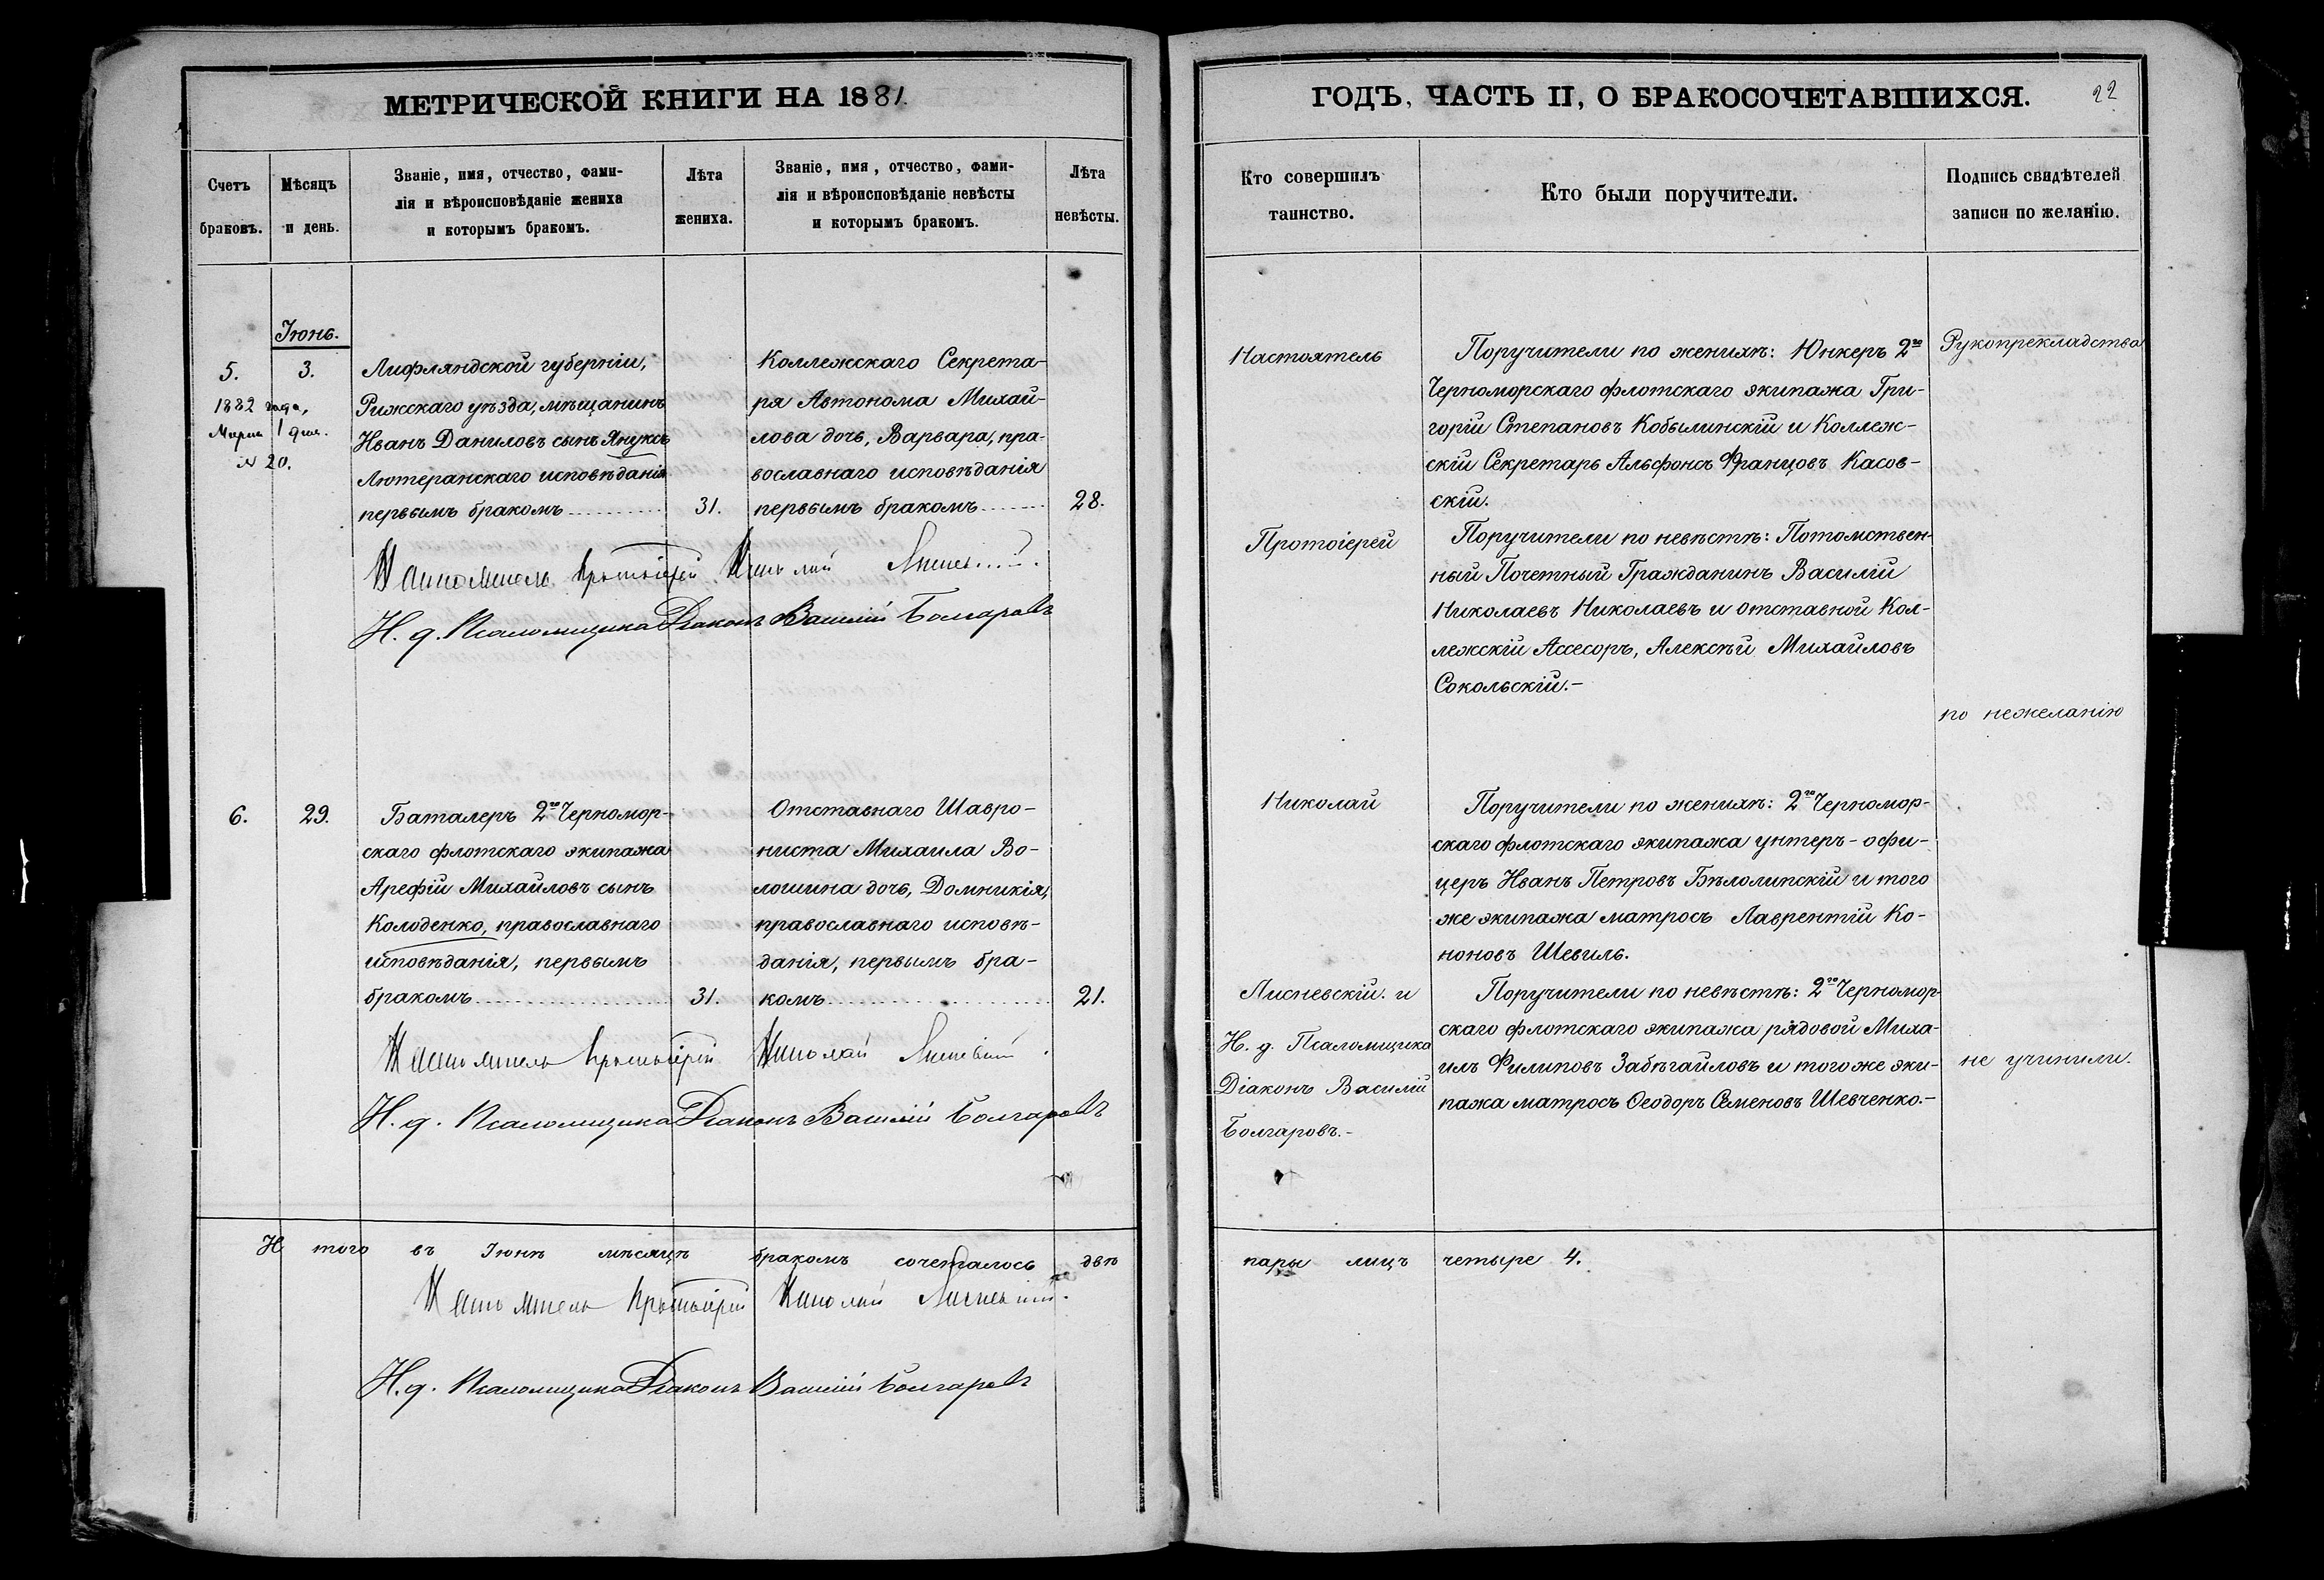 МЕТРИЧЕСКОЙ КНИГИ НА 1881.
Счетъ
браковъ.
Мѣсяцъ
и день.
Званіе, имя, отчество, фами-
лія и вѣроисповѣданіе жениха
и которымъ бракомъ.
Лѣта
жениха.
Званіе, имя, отчество, фами-
лія и вѣроисповѣданіе невѣсты
и которымъ бракомъ.
Лѣта
невѣсты.
Іюнь.
5.
1882 года,
Марта 1 дня.
№ 20.
3.
Лифляндской губерніи,
Рижскаго уѣзда, мѣщанинъ
Иванъ Даниловъ сынъ Януксъ
Лютеранскаго исповѣданія
первымъ бракомъ
31.
Коллежскаго Секрета-
ря Автонома Михай-
лова дочь, Варвара, пра-
вославнаго исповѣданія
первымъ бракомъ
28.
Настоятель Протоіерей Николай
Н. д. Псаломщика Діаконъ Василій Болгаровъ
6.
29.
Баталеръ 2го Черномор-
скаго флотскаго экипажа
Арефій Михайловъ сынъ
Колоденко, православнаго
исповѣданія, первымъ
бракомъ
31.
Отставнаго Шавро-
ниста Михаила Во-
лошина дочь, Домникія,
православнаго исповѣ-
данія, первымъ бра-
комъ
21.
Настоятель Протоіерей Николай Лисневскій
Н. д. Псаломщика Діаконъ Василій Болгаровъ
И того въ Іюнѣ мѣсяцѣ бракомъ сочеталось двѣ
Настоятель Протоіерей Николай Лисневскій.
Н. д. Псаломщика Діаконъ Василій Болгаровъ
ГОДЪ, ЧАСТЬ II, О БРАКОСОЧЕТАВШИХСЯ.
22
Кто совершилъ
таинство.
Кто были поручители.
Подпись свидѣтелей
записи по желанію.
Настоятель
Протоіерей
Николай
Лисневскій. и
Н. д. Псаломщика
Діаконъ Василій
Болгаровъ.-
Поручители по женихѣ: Юнкеръ 2го
Черноморскаго флотскаго экипажа Гри-
горій Степановъ Кобылинскій и Коллеж-
скій Секретарь Альфонсъ Францовъ Касов-
скій.
Поручители по невѣстѣ: Потомствен-
ный Почетный Гражданинъ Василій
Николаевъ Николаевъ и отставной Кол-
лежскій Ассесоръ, Алексѣй Михайловъ
Сокольскій.-
Поручители по женихѣ: 2го Черномор-
скаго флотскаго экипажа унтеръ-офи-
церъ Иванъ Петровъ Бѣлолипскій и того
же экипажа матросъ Лаврентій Ко-
ноновъ Шевиль.
Поручители по невѣстѣ: 2го Черномор-
скаго флотскаго экипажа рядовой Миха-
илъ Филиповъ Забѣгайловъ и того же эки-
пажа матросъ Ѳеодоръ Семеновъ Шевченко.-
Рукоприкладства
по нежеланію
не учинили.
пары лицъ четыре 4.